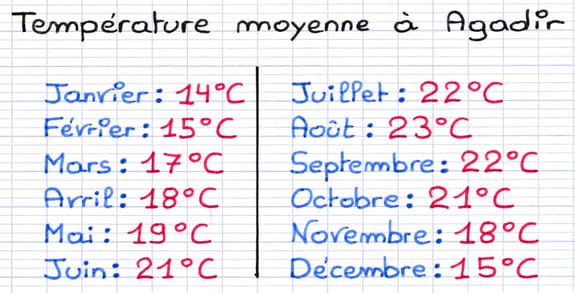 Température moyenne à Agadir
Janvier : 14°C
Février : 15°C
Mars : 17°C
Avril : 18°C
Mai : 19°C
Juin : 21°C
Juillet : 22°C
Août : 23°C
Septembre : 22°C
Octobre : 21°C
Novembre : 18°C
Décembre : 15°C